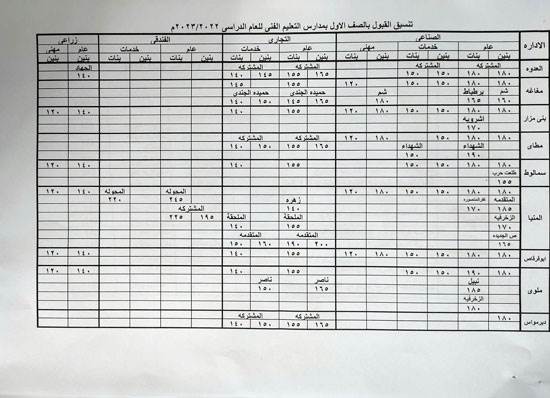 تنسيق القبول بالصف الاول بمدارس التعليم الفني للعام الدراسي ٢٠٢٣/٢٠٢٢م
الادارة الصناعى التجارى الفندقى زراعى
عام خدمات عام خدمات عام خدمات عام مهنى
بنين بنات بنين بنات بنين بنات بنين بنات بنين بنات بنين بنات بنين بنين
العدوه المشتركه المشتركه المشتركه المشتركه الجهاد
١٨٠ ١٨٠ ١٥٠ ١٥٠ ١٦٥ ١٥٥ ١٤٥ ١٤٠ ١٤٠
مغاغه ١٨٠ ١٨٠ ١٥٠ ١٥٠ ١٨٠ ١٢٠ ١٥٥ ١٤٥
شم برطباط شم حميده الجندى حميده الجندى
١٦٠ ١٦٥ ١٨٠ ١٦٥ ١٤٥ ١٥٠ ١٤٠
بنى مزار ١٨٠ ١٨٠ ١٥٠ ١٥٠ ١٥٥ ١٤٠ ١٤٠ ١٢٠
اشرويه
١٧٠
مطاى الشهداء الشهداء المشتركه المشتركه
١٩٠ ١٥٠ ١٦٥ ١٥٥ ١٥٠ ١٤٠
سمالوط ١٨٠ ١٨٠ ١٥٠ ١٥٠ ١٥٥ ١٤٠ ١٤٠ ١٢٠
طلعت حرب
١٥٥
المنيا ١٨٠ ١٨٠ ١٥٠ ١٥٠ ١٨٠ ١٢٠ ١٥٥ ١٤٠ ١٤٠ ١٢٠
المتقدمه زهره المحوله المحوله
١٨٥ ١٧٠ ١٤٠ ٢٤٥ ٢٢٠
الزخرفيه الملحقة الملحقة المشتركه
١٧٠ ١٤٠ ١٤٠ ١٩٥ ٢٢٥
ص الجديده المتقدمه المتقدمه
١٦٥ ٢٠٠ ١٩٠ ١٦٠ ١٥٠
ابوقرقاص ١٨٠ ١٨٠ ١٥٠ ١٥٠ ١٨٠ ١٢٠ ١٥٥ ١٤٠ ١٤٠ ١٢٠
ملوى ١٨٠ ١٩٠ ١٥٠ ١٥٠ ١٥٥ ١٤٠ ١٤٠ ١٢٠
نبيل ناصر ناصر
١٨٥ ١٦٥ ١٥٠
الزخرفيه
١٨٠
ديرمواس ١٨٠ ١٨٠ ١٥٠ ١٥٠ المشتركه المشتركه
١٦٥ ١٥٥ ١٥٠ ١٤٠